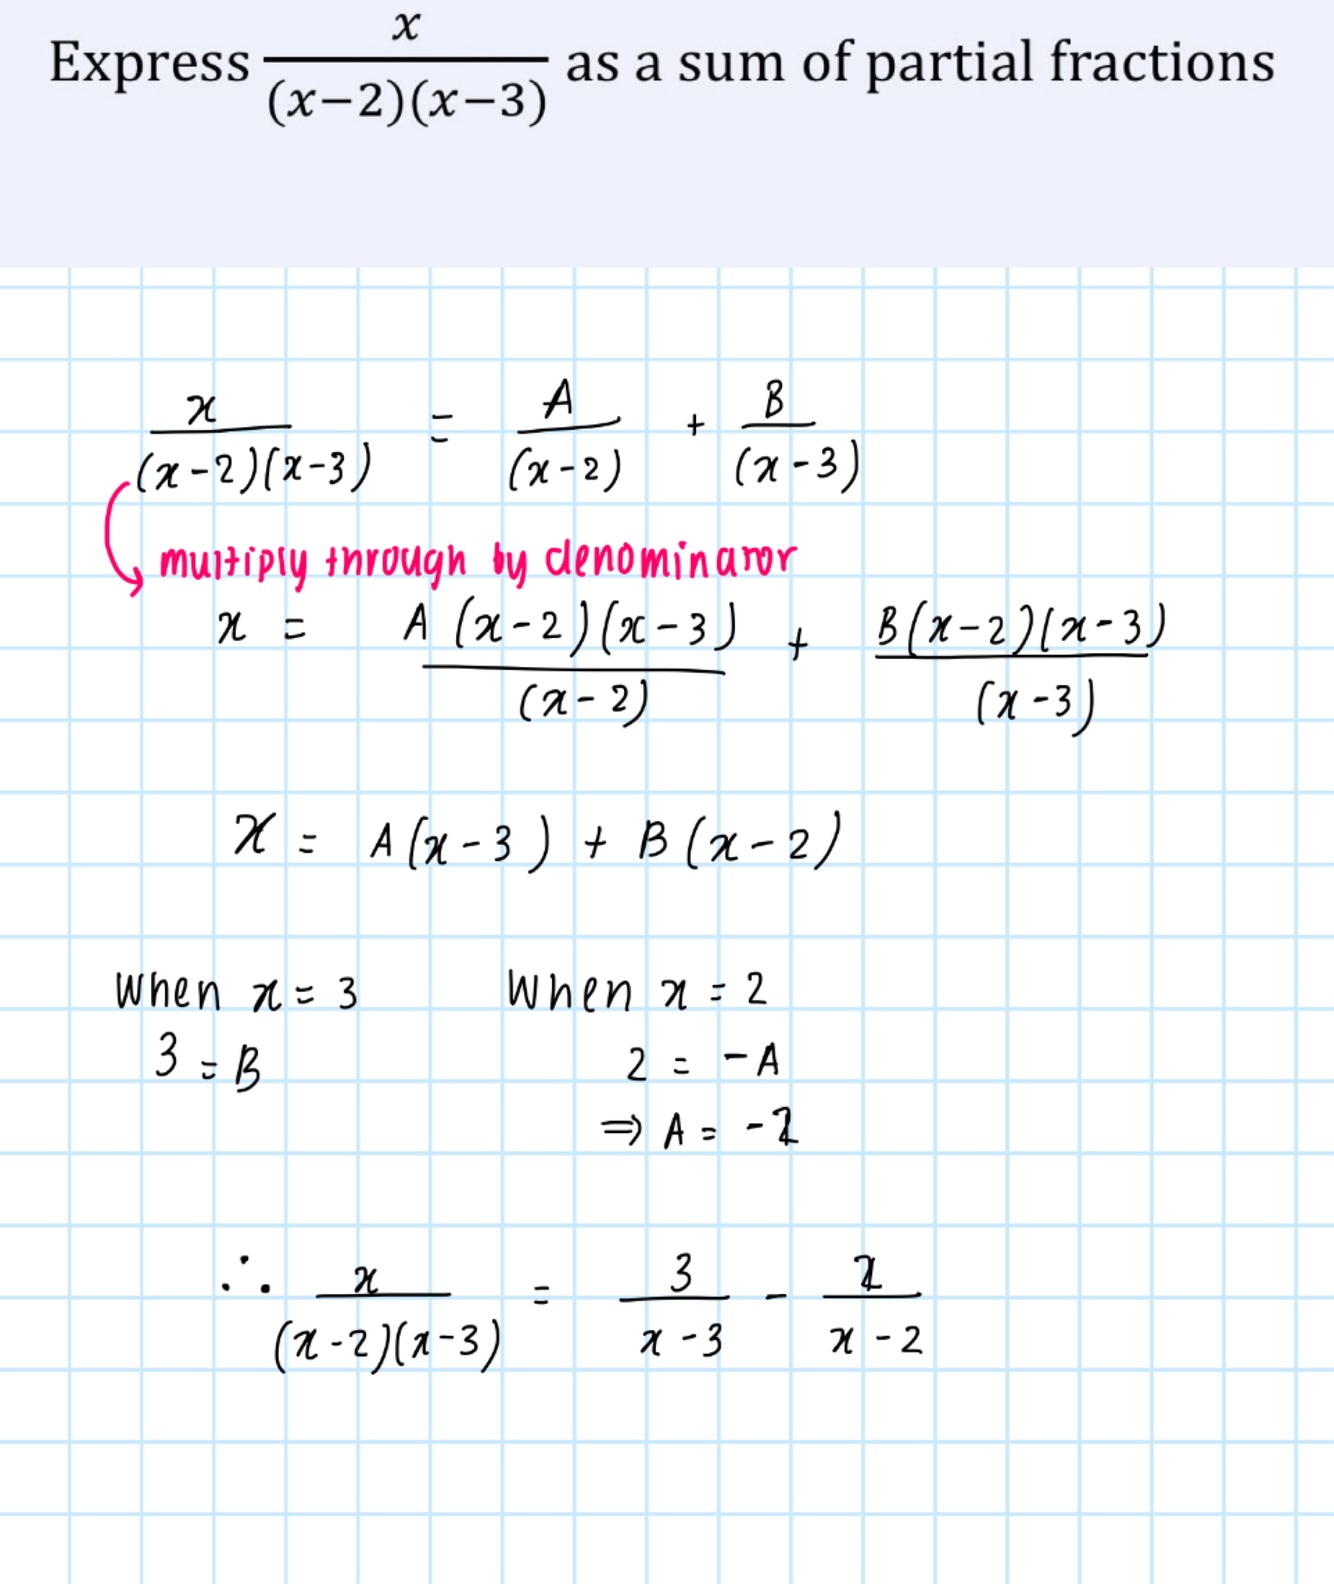 Express x/((x−2)(x−3)) as a sum of partial fractions
x/((x-2)(x-3)) = A/(x-2) + B/(x-3)
multiply through by denominator
x = A(x-2)(x-3)/(x-2) + B(x-2)(x-3)/(x-3)
x = A(x-3) + B(x-2)
When x = 3 When x = 2
3 = B 2 = -A
⇒ A = -2
∴ x/((x-2)(x-3)) = 3/(x-3) - 2/(x-2)